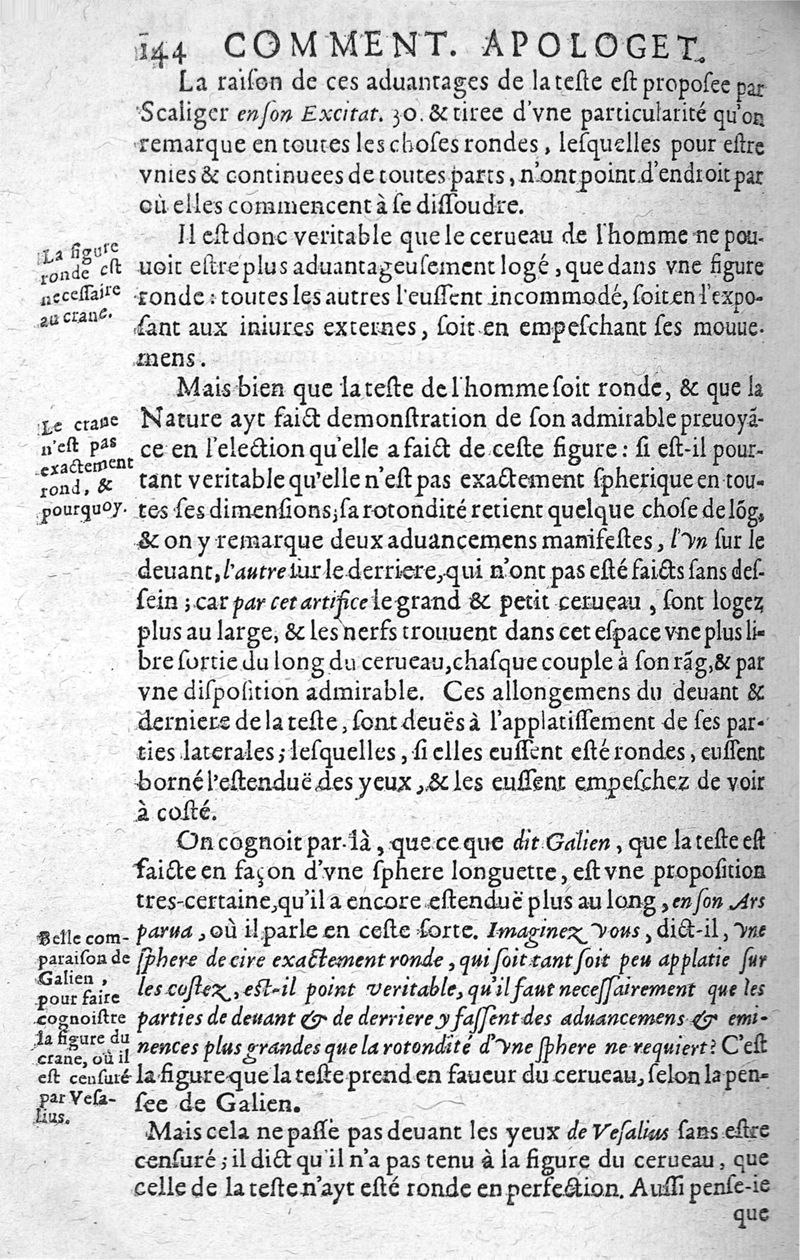 144 COMMENT. APOLOGET.
La raiſon de ces aduantages de la teſte eſt propoſee par
Scaliger en ſon Excitat. 30. & tiree d'vne particularité qu'on
remarque en toutes les choſes rondes, leſquelles pour eſtre
vnies & continuees de toutes parts, n'ont point d'endroit par
où elles commencent à ſe diſſoudre.
Il eſt donc veritable que le cerueau de l'homme ne pou-
uoit eſtre plus aduantageuſement logé, que dans vne figure
ronde : toutes les autres l'euſſent incommodé, ſoit en l'expo-
ſant aux iniures externes, ſoit en empeſchant ſes mouue-
mens.
La figure
ronde eſt
neceſſaire
au crane.
Mais bien que la teſte de l'homme ſoit ronde, & que la
Nature ayt faict demonſtration de ſon admirable preuoyã-
ce en l'election qu'elle a faict de ceſte figure : ſi eſt-il pour-
tant veritable qu'elle n'eſt pas exactement ſpherique en tou-
tes ſes dimenſions; ſa rotondité retient quelque choſe de lõg,
& on y remarque deux aduancemens manifeſtes, l'vn ſur le
deuant, l'autre ſur le derriere, qui n'ont pas eſté faicts ſans deſ-
ſein ; car par cet artifice le grand & petit cerueau, ſont logez
plus au large, & les nerfs trouuent dans cet eſpace vne plus li-
bre ſortie du long du cerueau, chaſque couple à ſon rãg, & par
vne diſpoſition admirable. Ces allongemens du deuant &
derniere de la teſte, ſont deuës à l'applatiſſement de ſes par-
ties laterales ; leſquelles, ſi elles euſſent eſté rondes, euſſent
borné l'eſtenduë des yeux, & les euſſent empeſchez de voir
à coſté.
Le crane
n'eſt pas
exactement
rond, &
pourquoy.
On cognoit par là, que ce que dit Galien, que la teſte eſt
faicte en façon d'vne ſphere longuette, eſt vne propoſition
tres-certaine, qu'il a encore eſtenduë plus au long, en ſon Ars
parua, où il parle en ceſte ſorte. Imaginez vous, dict-il, vne
ſphere de cire exactement ronde, qui ſoit tant ſoit peu applatie ſur
les coſtez, eſt-il point veritable, qu'il faut neceſſairement que les
parties de deuant & de derriere y faſſent des aduancemens & emi-
nences plus grandes que la rotondité d'vne ſphere ne requiert? C'eſt
la figure que la teſte prend en faueur du cerueau, ſelon la pen-
ſee de Galien.
Belle com-
paraiſon de
Galien,
pour faire
cognoiſtre
la figure du
crane, où il
eſt cenſuré
par Veſa-
lius.
Mais cela ne paſſe pas deuant les yeux de Veſalius ſans eſtre
cenſuré ; il dict qu'il n'a pas tenu à la figure du cerueau, que
celle de la teſte n'ayt eſté ronde en perfection. Auſſi penſe-ie
que